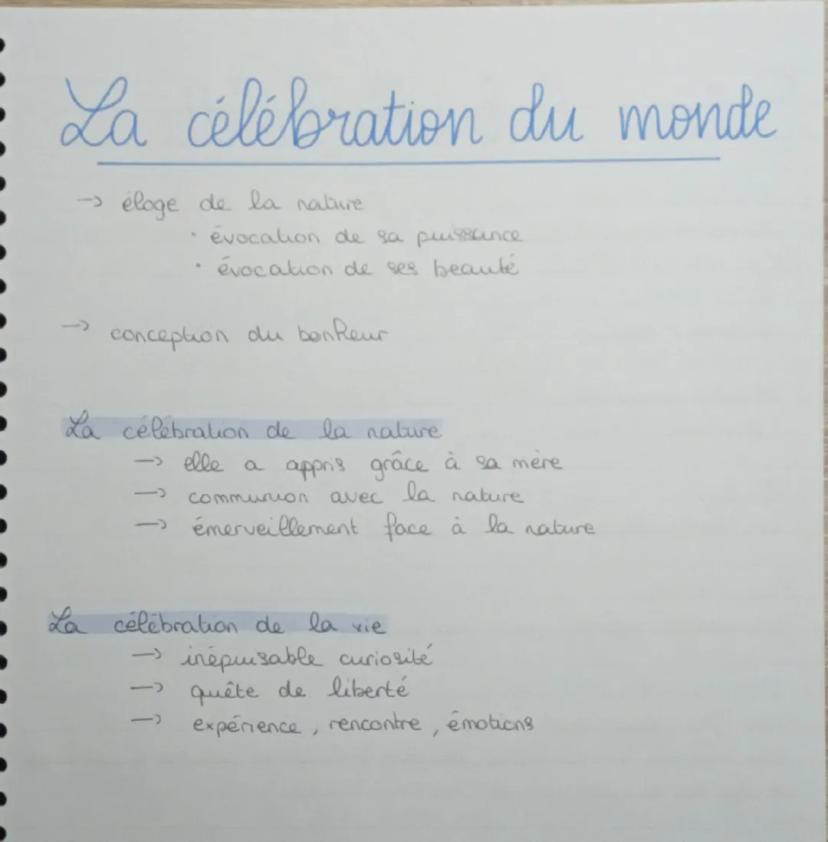 La célébration du monde
-> éloge de la nature
· évocation de sa puissance
· évocation de ses beauté
-> conception du bonheur
La célébration de la nature
-> elle a appris grâce à sa mère
-> communion avec la nature
-> émerveillement face à la nature
La célébration de la vie
-> inépuisable curiosité
-> quête de liberté
-> expérience, rencontre, émotions